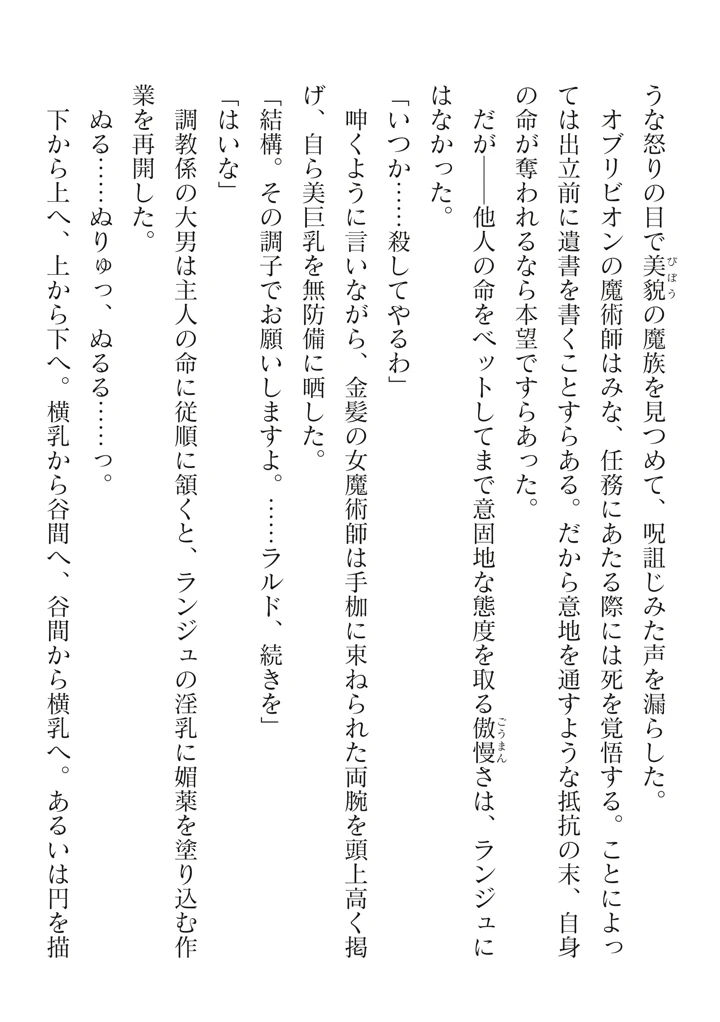 うな怒りの目で美貌の魔族を見つめて、呪詛じみた声を漏らした。
びぼう
オブリビオンの魔術師はみな、任務にあたる際には死を覚悟する。ことによっ
ては出立前に遺書を書くことすらある。だから意地を通すような抵抗の末、自身
の命が奪われるなら本望ですらあった。
だが――他人の命をベットしてまで意固地な態度を取る傲慢さは、ランジュに
ごうまん
はなかった。
「いつか……殺してやるわ」
呻くように言いながら、金髪の女魔術師は手枷に束ねられた両腕を頭上高く掲
げ、自ら美巨乳を無防備に晒した。
「結構。その調子でお願いしますよ。……ラルド、続きを」
「はいな」
調教係の大男は主人の命に従順に頷くと、ランジュの淫乳に媚薬を塗り込む作
業を再開した。
ぬる……ぬりゅっ、ぬるる……っ。
下から上へ、上から下へ。横乳から谷間へ、谷間から横乳へ。あるいは円を描